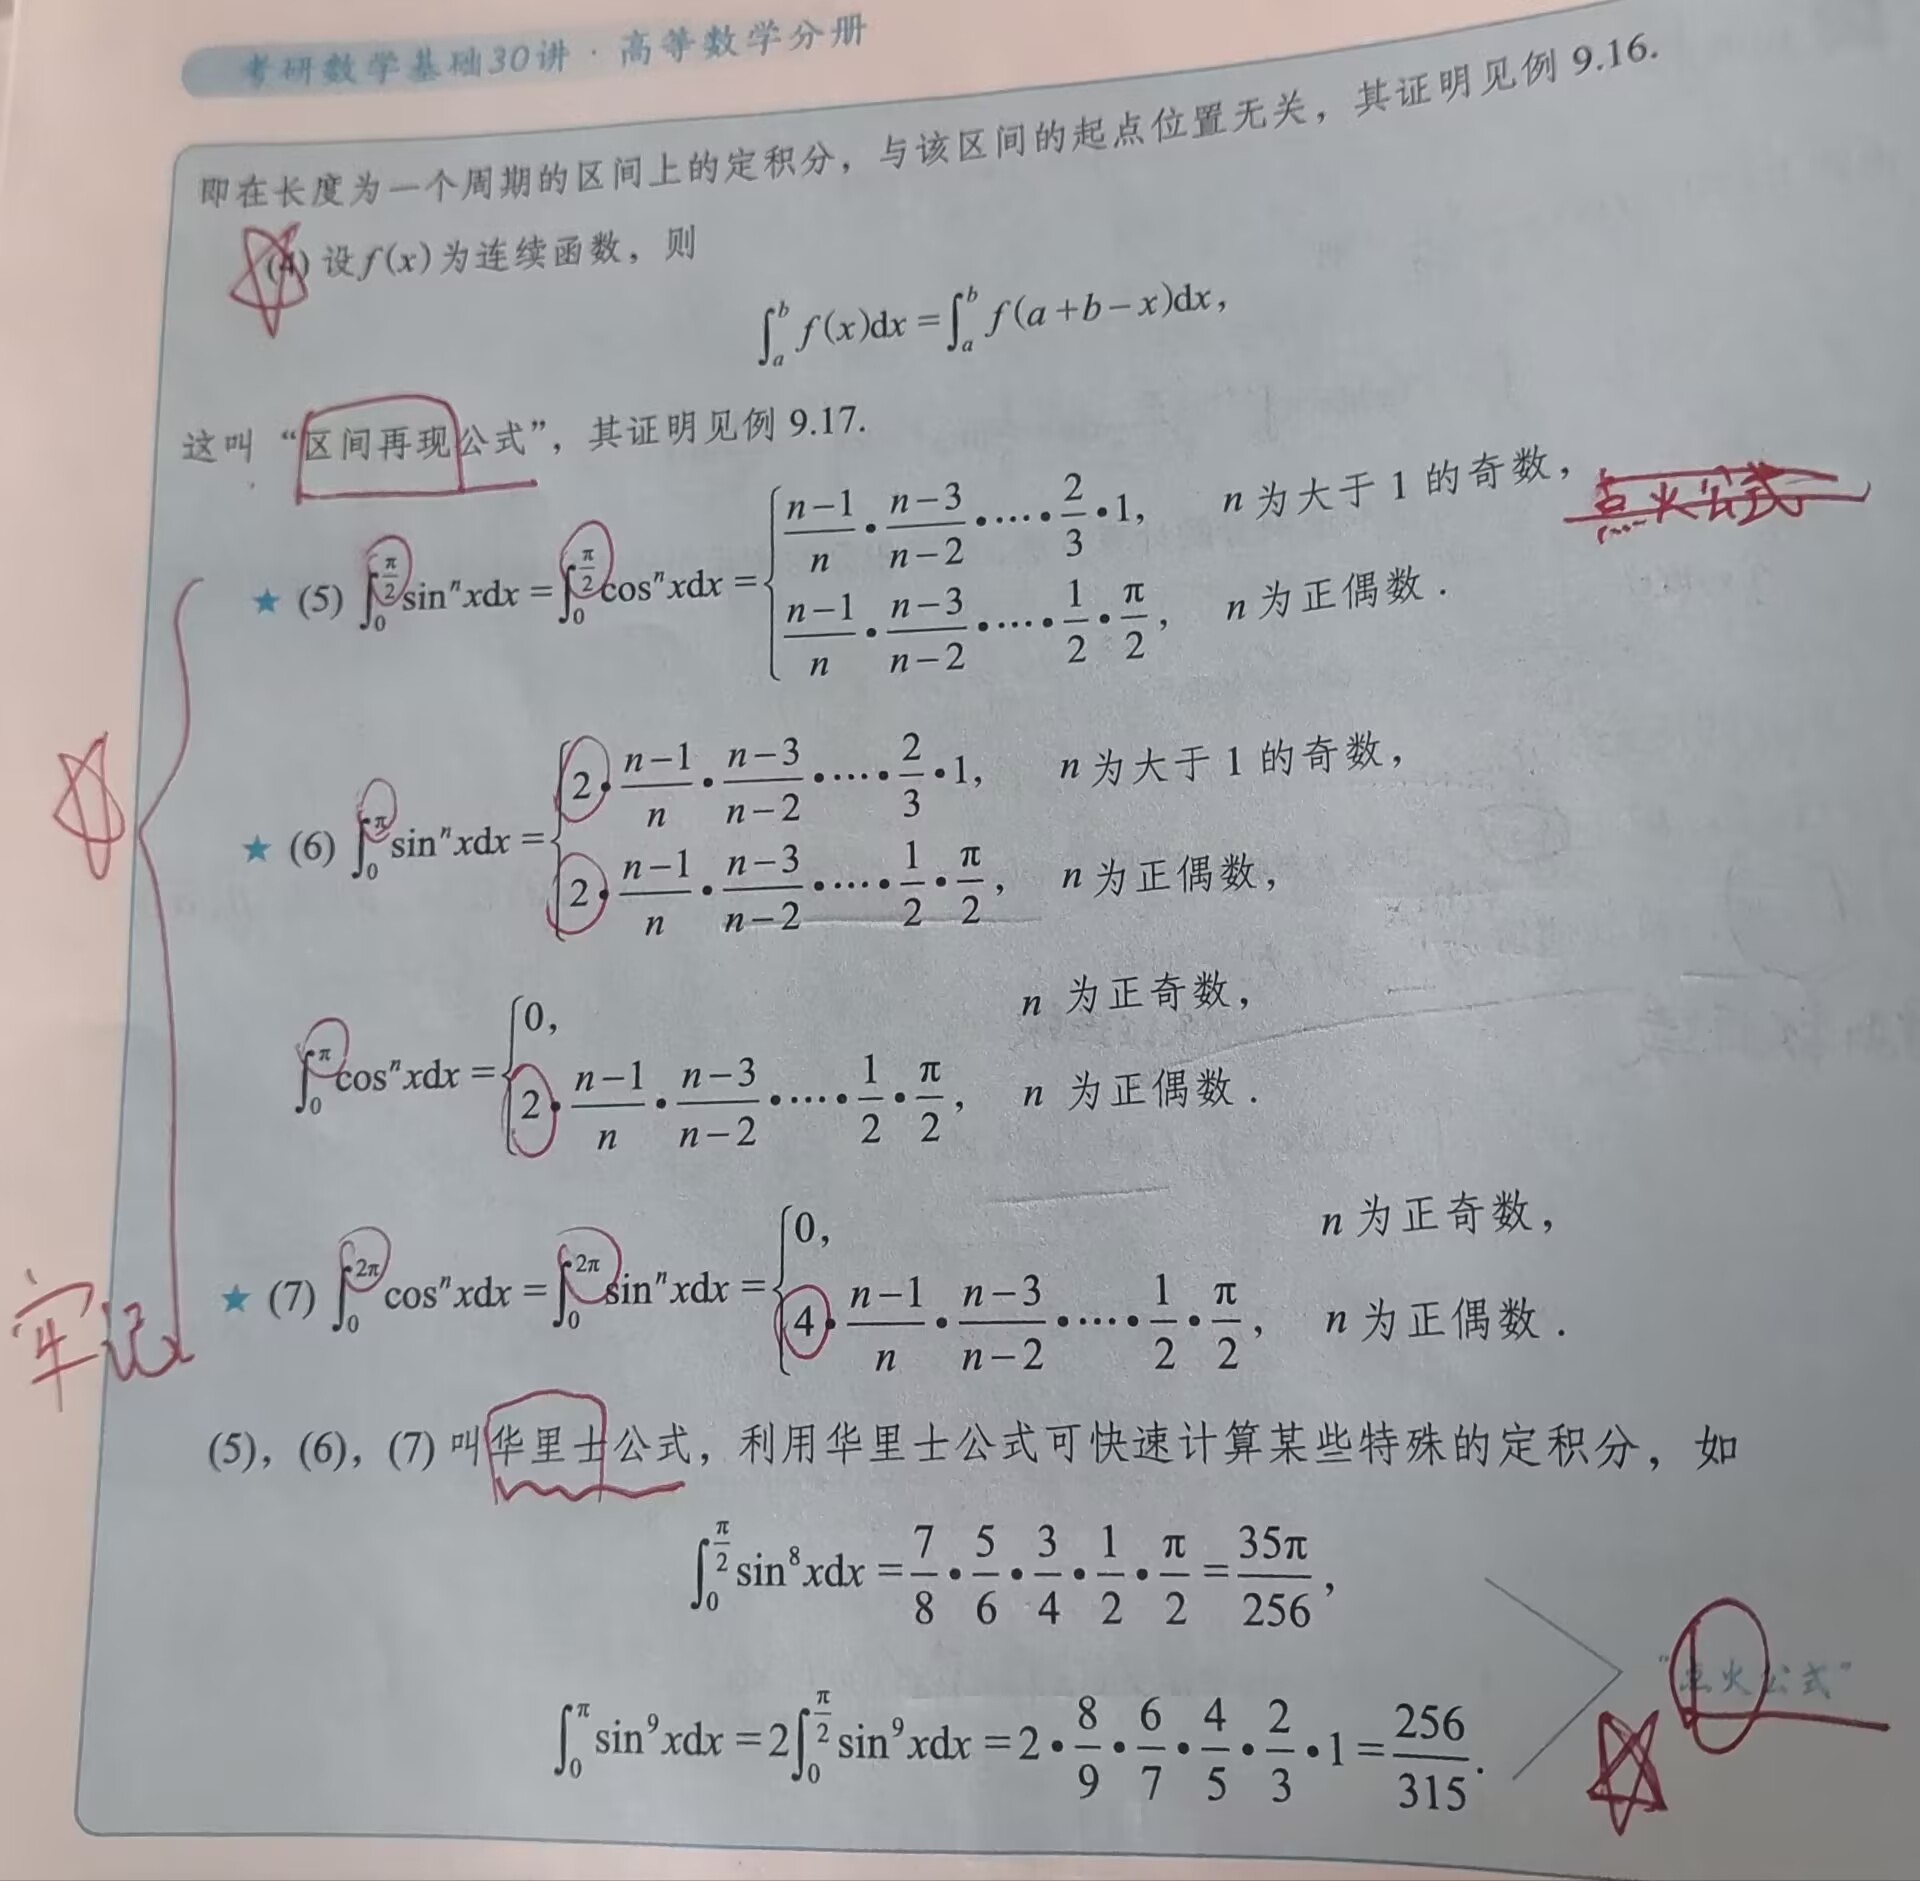 考研数学基础30讲·高等数学分册
即在长度为一个周期的区间上的定积分，与该区间的起点位置无关，其证明见例 9.16.
(4) 设 f(x) 为连续函数，则
∫_a^b f(x)dx = ∫_a^b f(a+b−x)dx,
这叫“区间再现公式”，其证明见例 9.17.
★ (5) ∫_0^{π/2} sin^n xdx = ∫_0^{π/2} cos^n xdx = { (n−1)/n · (n−3)/(n−2) · … · 2/3 · 1, n 为大于 1 的奇数， 点火公式
(n−1)/n · (n−3)/(n−2) · … · 1/2 · π/2, n 为正偶数.
★ (6) ∫_0^π sin^n xdx = { 2 · (n−1)/n · (n−3)/(n−2) · … · 2/3 · 1, n 为大于 1 的奇数，
2 · (n−1)/n · (n−3)/(n−2) · … · 1/2 · π/2, n 为正偶数，
∫_0^π cos^n xdx = { 0, n 为正奇数，
2 · (n−1)/n · (n−3)/(n−2) · … · 1/2 · π/2, n 为正偶数.
★ (7) ∫_0^{2π} cos^n xdx = ∫_0^{2π} sin^n xdx = { 0, n 为正奇数，
4 · (n−1)/n · (n−3)/(n−2) · … · 1/2 · π/2, n 为正偶数.
牢记
(5)，(6)，(7) 叫华里士公式，利用华里士公式可快速计算某些特殊的定积分，如
∫_0^{π/2} sin^8 xdx = 7/8 · 5/6 · 3/4 · 1/2 · π/2 = 35π/256,
“点火公式”
∫_0^π sin^9 xdx = 2∫_0^{π/2} sin^9 xdx = 2 · 8/9 · 6/7 · 4/5 · 2/3 · 1 = 256/315.